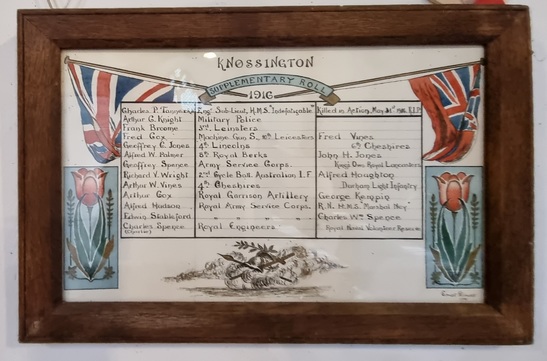 KNOSSINGTON
SUPPLEMENTARY ROLL
1916
Charles P. Eng. Sub-Lieut, H.M.S. "Indefatigable" Killed in Action, May 31st 1916. R.I.P.
Arthur G. Knight Military Police
Frank Broome 3rd Leinsters
Fred Cox Machine Gun S., Leicesters Fred Vines
Geoffrey C. Jones 4th Lincolns 6th Cheshires
Alfred W. Palmer 8th Royal Berks John H. Jones
Geoffrey Spence Army Service Corps. Kings Own Royal Lancasters
Richard V. Wright 2nd Cycle Bat. Australian I.F Alfred Houghton
Arthur W. Vines 4th Cheshires Durham Light Infantry
Arthur Cox Royal Garrison Artillery George Kempin
Alfred Hudson Royal Army Service Corps. R.N. H.M.S. "Marshal Ney"
Edwin Stableford " " " " Charles Wm Spence
Charles Spence Royal Engineers Royal Naval Volunteer Reserve
(Charlie)